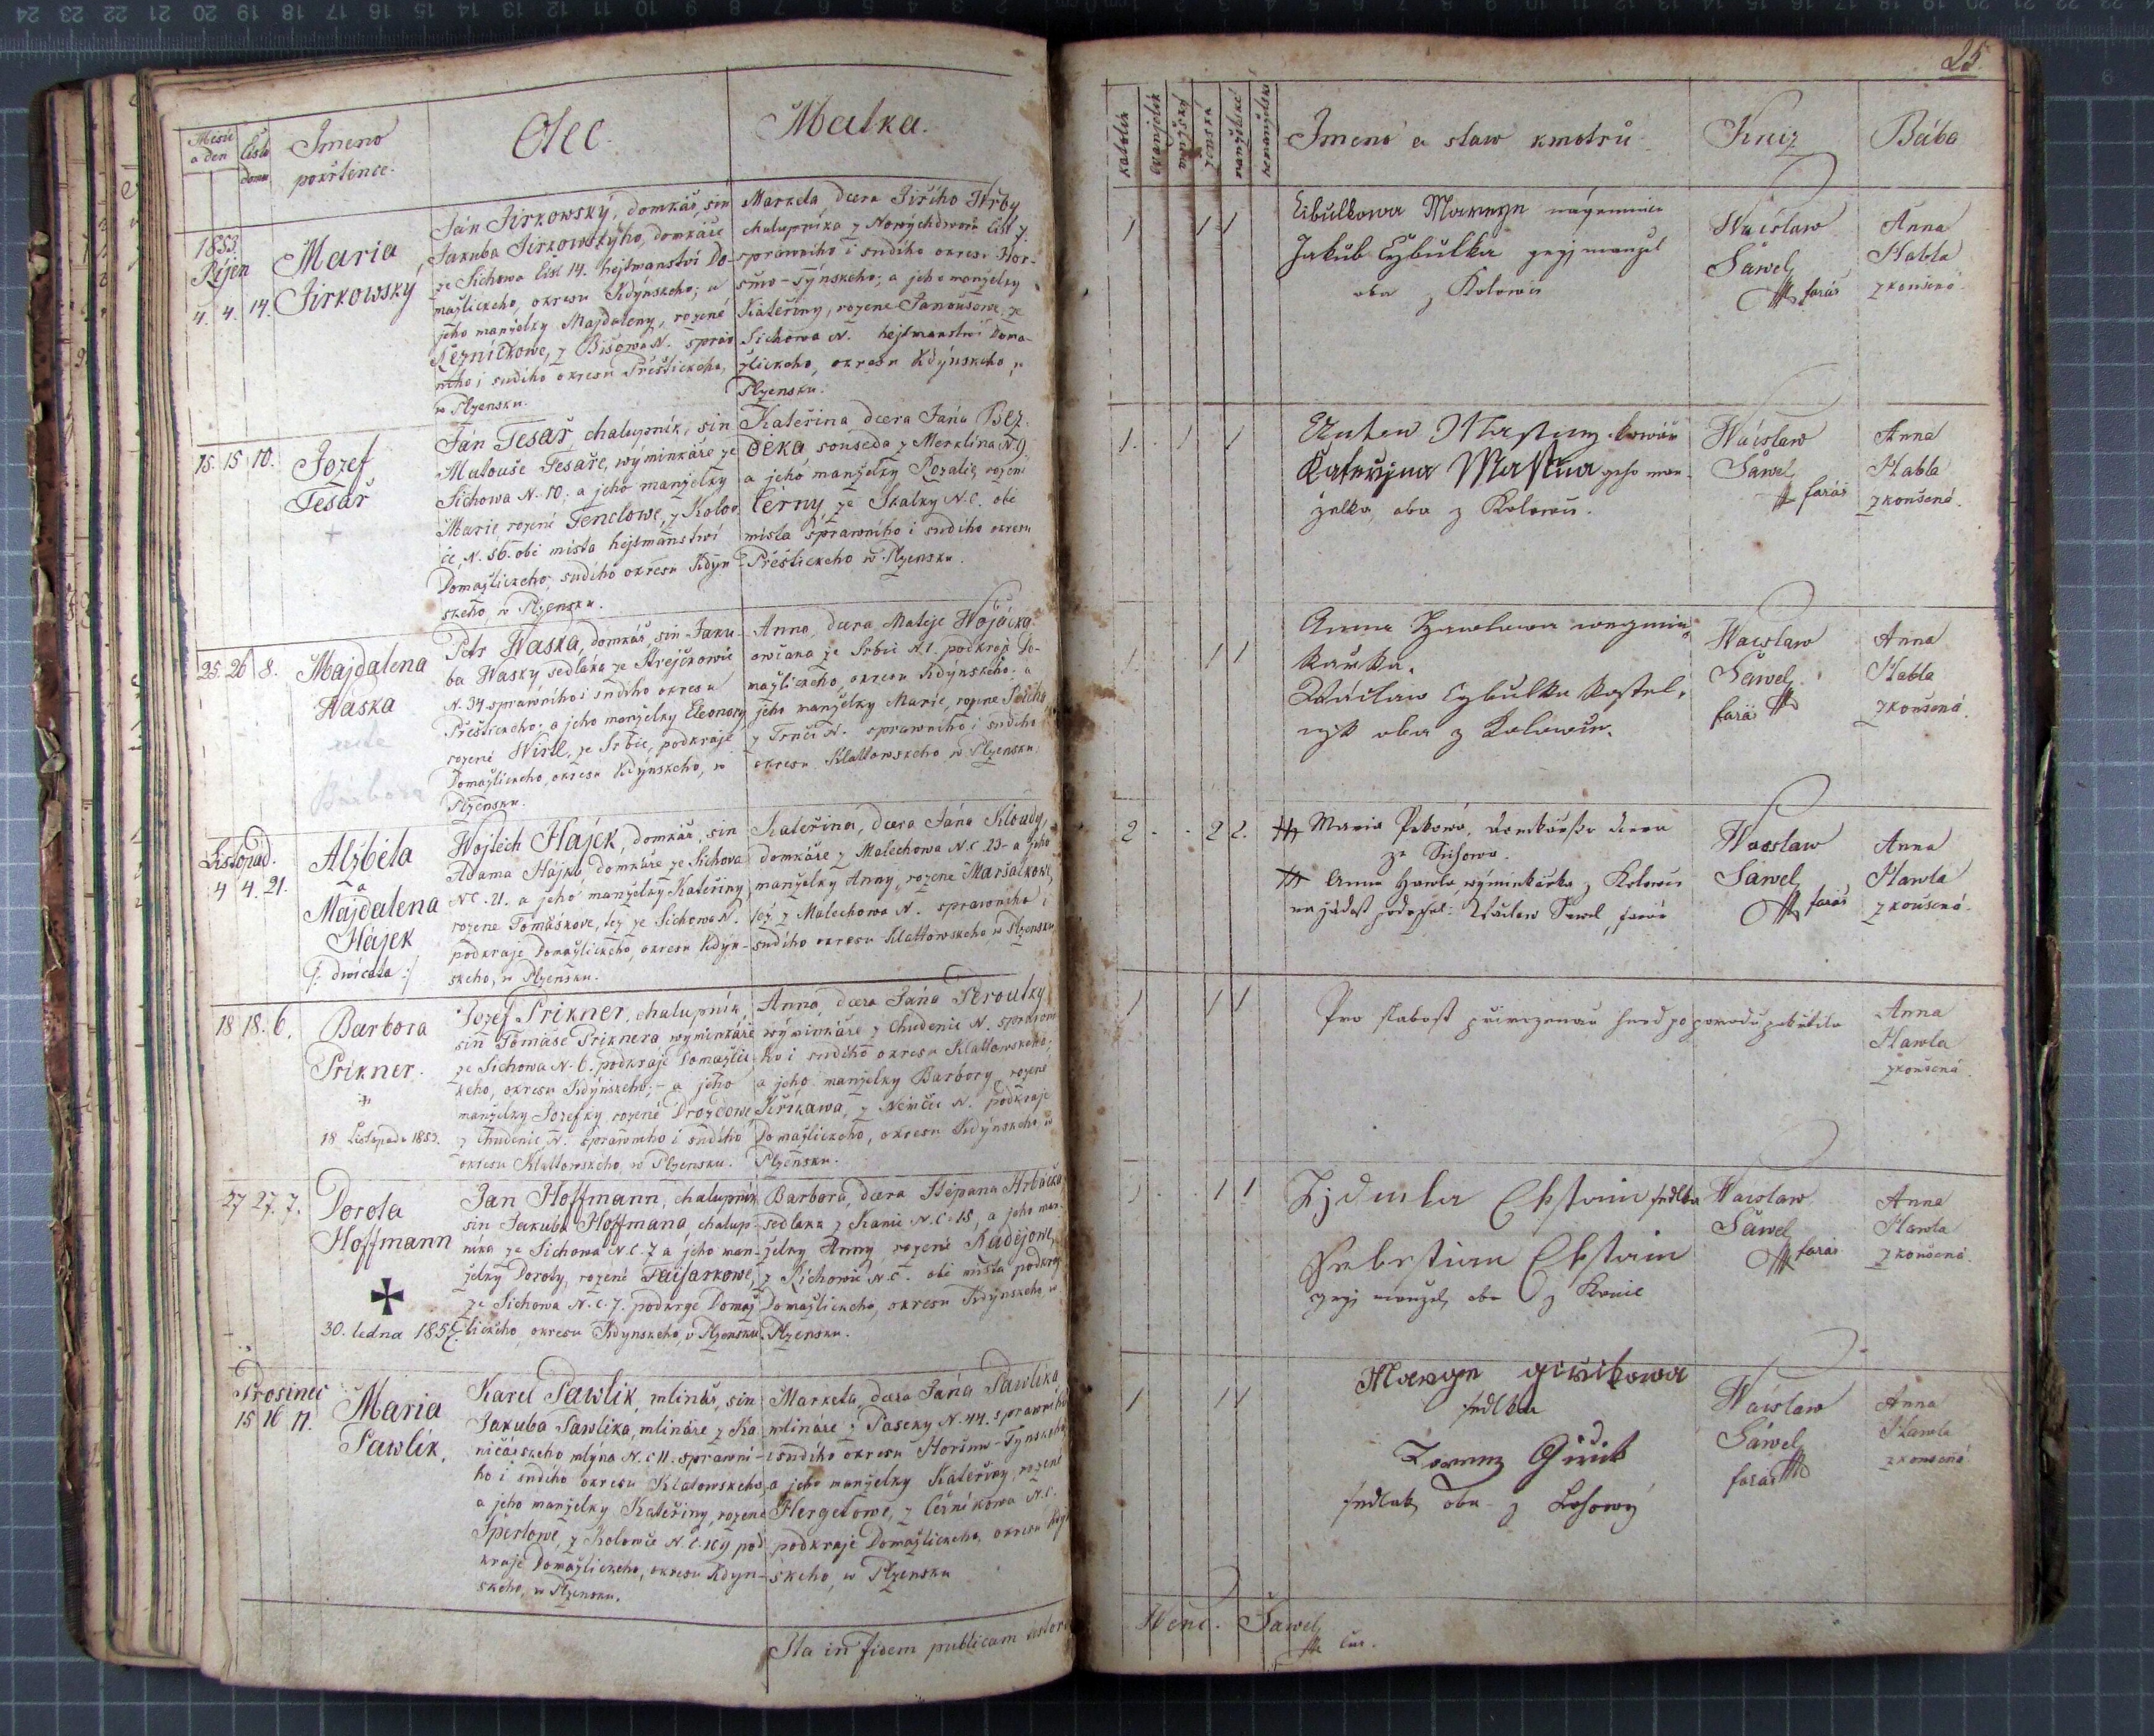 Měsíc a den
číslo domu
Jmeno pokřtěnce.
Otec.
Matka.
1853
Říjen
4. 4. 14.
Maria
Jirkowsky
Ján Jirkowský, domkář, sin
Jakuba Jirkowskýho, domkáře
ze Sichowa čísl. 14. hejtmanství Do-
mažlického, okresu Kdýnského; a
jeho manželky Majdaleny, rozené
Řezníčkowe, z Bišowa N. spráw
niho i sudího okresu Přeštického,
w Plzensku.
Marketa dcera Jiřího Wrby
chalupníka z Nowýchdworů čísl 7.
spráwniho i sudího okresu Hor-
šowo-Týnskeho; a jeho manželky
Kateřiny, rozene Janoušowe, ze
Sichowa N. hejtmanstwí Doma-
žlickeho, okresu Kdýnskeho, w
Plzensku.
15. 15. 10.
Jozef
Tesař
Ján Tesař chalupník, sin
Matouše Tesaře, wýminkáře ze
Sichowa N. 10; a jeho manželky
Marie, rozené Tenclowe, z Kolow
če, N. 56. obě místa hejtmanstwí
Domažlickeho, sudího okresu Kdýn
skeho, w Plzensku.
Kateřina dcera Jána Bez-
děka souseda z Merklína N. 9
a jeho manželky Rozalie, rozené
Černy, ze Skalky N. C. obě
místa spráwního i sudího okresu
Přeštickeho w Plzensku.
25. 26. 8.
Majdalena
Waska
Barbora
Petr Waska, domkář, sin Jaku-
ba Wasky sedláka ze Strejčkowic
N. 34. spráwního i sudího okresu
Přeštickeho; a jeho manželky Eleonory
rozené Wirtl, ze Srbic, podkraje
Domažlickeho, okresu Kdýnskeho, w
Plzensku.
Anna, dcera Matěje Wojáčka
owčáka ze Srbic N. 1. podkraje Do-
mažlickeho, okresu Kdýnskeho; a
jeho manželky Marie, rozene
z Trnčí N. spráwniho i sudího
okresu Klattowskeho w Plzensku.
Listopad.
4 4. 21.
Alžběta
a
Majdalena
Hájek
/: dwíčata :/
Wojtěch Hájek, domkář, sin
Adama Hájka, domkáře ze Sichowa
N. C. 21. a jeho manželky Kateřiny
rozene Tomáškowe, též ze Sichowa N.
podkraje Domažlickeho, okresu Kdýn-
skeho, w Plzensku.
Kateřina, dcera Jána Kloudy,
domkáře z Malechowa N. C. 23. a jeho
manželky Anny, rozene Maršalkowe,
též z Malechowa N. spráwniho i
sudího okresu Klattowskeho w Plzensku.
18 18. 6.
Barbora
Prikner.
18 Listopadu 1853.
Jozef Prikner, chalupník,
sin Tomáše Priknera wýminkáře
ze Sichowa N. 6. podkraje Domažlic
keho, okresu Kdýnskeho; a jeho
manželky Jozefky, rozené Drozdowe
z Chudenic N. spráwniho i sudího
okresu Klattowskeho, w Plzensku.
Anna, dcera Jána Peroutky
wýminkáře z Chudenic N. spráwni
ho i sudího okresu Klattowskeho;
a jeho manželky Barbory, rozene
Jiřikawa, z Němčic N. podkraje
Domažlickeho, okresu Kdýnskeho, w
Plzensku.
27 27. 7.
Dorota
Hoffmann
30. ledna 185
Jan Hoffmann, chalupník
sin Jakuba Hoffmana, chalup-
níka ze Sichowa N. C. 7 a jeho man-
želky Doroty, rozené Faifarkowe,
ze Sichowa N. C. 7. podkrge Domaž
lickeho okresu Kdynskeho, w Plzensku.
Barbora, dcera Štěpana Hrbáčka
sedláka z Kanic N. C. 15, a jeho man-
želky Anny rozené Kudějowe,
z Kichowic N. C. obě místa podkraje
Domažlickeho, okresu Kdýnskeho, w
Plzensku.
Prosinec
15 16 11.
Maria
Pawlik.
Karel Pawlik, mlinář, sin
Jakuba Pawlika, mlináře z Ka
ničářskeho mlýna N. C 11. spráwni-
ho i sudího okresu Klatowskeho,
a jeho manželky Kateřiny, rozene
Šperlowe, z Kolowče N. C. 104 pod
kraje Domažlickeho, okresu Kdýn-
skeho, w Plzensku.
Marketa, dcera Jána Pawlika
mlináře z Paseky N. 44. spráwního
i sudího okresu Horšow-Týnskeho
a jeho manželky Kateřiny, rozené
Hergetowe, z Černíkowa N. C.
podkraje Domažlickeho, okresu Kdýn
skeho, w Plzensku
Ita in fidem publicam
25.
katolík
evanjelík
mužský
ženská
manželské
nemanželské
Jmeno a staw kmotrů
Kněz
Bába
1 1 1
Cibulkowa Maryge nágemnice
Jakub Cybulka gegj manžel
oba z Kolowče
Wáclaw
Šawel
farář
Anna
Habla
zkoušená.
1. 1 1
Anton Mastny kowář
Kateržina Mastna geho man-
želka, oba z Kolowče.
Wáclaw
Šawel
farář
Anna
Habla
zkoušená.
1 1 1
Anna Hawlowa weymin-
kářka.
Wácław Cybulka kostel-
njk oba z Kolowče.
Wacslaw
Šawel
farář
Anna
Habla
zkoušená.
2 2 2.
+++ Maria Pekowá, domkářka dcera
ze Sichowa.
+++ Anna Hawla, wýminkářka z Kolowče
na žádost podepsal: Wácław Šawel, farář
Wacslaw
Šawel
farář
Anna
Hawla
zkoušená.
1 1 1
Pro slabost přirozenau hned po porodu pokřtila
Anna
Hawla
zkoušená.
1 1 1
Lidmila Ekstain sedlka
Sebestian Ekstain
gegj manžel, oba z Kanic
Wacslaw
Šawel
farář
Anna
Hawla
zkoušená.
1 1 1
Marge girikowa
sedlka
Lorenz Giřik
sedlak oba z Lohowý
Wácslaw
Šawel
farář
Anna
Hawla
zkoušená
Wenc. Šawel
cur.